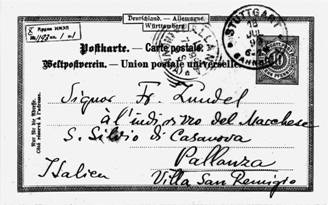 Deutschland. – Allemagne.
Württemberg.
Postkarte. — Carte postale.
Weltpostverein. — Union postale universelle.
STUTTGART
JUL
BAHNHOF
10
Nur für die Adresse.
Côté réservé à l'adresse.
Signor Fr. Zundel
all'indirizzo del Marchese
S. Silvio di Casanova
Pallanza
Villa San Remigio
Italien